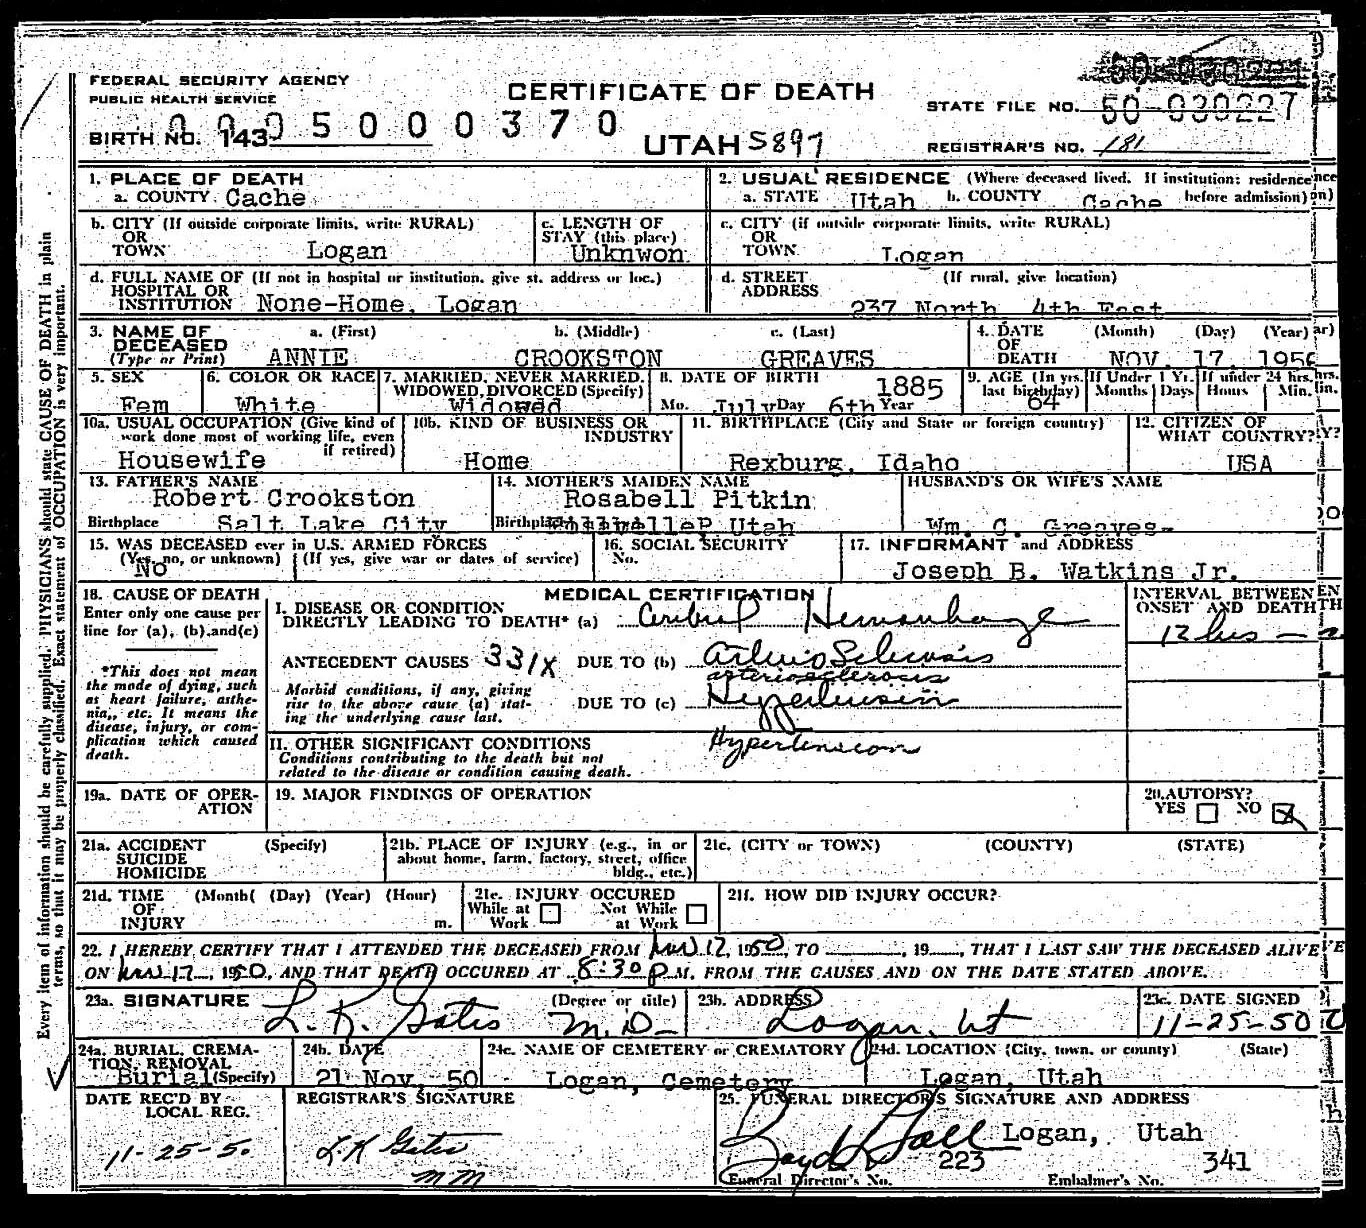 FEDERAL SECURITY AGENCY
PUBLIC HEALTH SERVICE
BIRTH NO. 143
0005000370
CERTIFICATE OF DEATH
UTAH 5897
STATE FILE NO. 50-030227
REGISTRAR'S NO. 181
1. PLACE OF DEATH
a. COUNTY Cache
2. USUAL RESIDENCE (Where deceased lived. If institution: residence before admission)
a. STATE Utah b. COUNTY Cache
b. CITY (If outside corporate limits, write RURAL)
OR
TOWN Logan
c. LENGTH OF
STAY (this place)
Unknwon
c. CITY (if outside corporate limits, write RURAL)
OR
TOWN Logan
d. FULL NAME OF (If not in hospital or institution, give st. address or loc.)
HOSPITAL OR
INSTITUTION None-Home, Logan
d. STREET (If rural, give location)
ADDRESS 237 North 4th East
3. NAME OF DECEASED (Type or Print)
a. (First) b. (Middle) c. (Last)
ANNIE CROOKSTON GREAVES
4. DATE OF DEATH (Month) (Day) (Year)
NOV 17 1950
5. SEX
Fem
6. COLOR OR RACE
White
7. MARRIED, NEVER MARRIED,
WIDOWED, DIVORCED (Specify)
Widowed
8. DATE OF BIRTH 1885
Mo. July Day 6th Year
9. AGE (In yrs. last birthday)
64
If Under 1 Yr.
Months Days
If under 24 hrs.
Hours Min.
10a. USUAL OCCUPATION (Give kind of
work done most of working life, even
if retired)
Housewife
10b. KIND OF BUSINESS OR
INDUSTRY
Home
11. BIRTHPLACE (City and State or foreign country)
Rexburg, Idaho
12. CITIZEN OF
WHAT COUNTRY?
USA
13. FATHER'S NAME
Robert Crookston
Birthplace Salt Lake City
14. MOTHER'S MAIDEN NAME
Rosabell Pitkin
Birthplace Utah
HUSBAND'S OR WIFE'S NAME
Wm. C. Greaves-
15. WAS DECEASED ever in U.S. ARMED FORCES
(Yes, no, or unknown) (If yes, give war or dates of service)
No
16. SOCIAL SECURITY
No.
17. INFORMANT and ADDRESS
Joseph B. Watkins Jr.
18. CAUSE OF DEATH
Enter only one cause per
line for (a), (b), and (c)
*This does not mean
the mode of dying, such
as heart failure, asthe-
nia, etc. It means the
disease, injury, or com-
plication which caused
death.
MEDICAL CERTIFICATION
I. DISEASE OR CONDITION
DIRECTLY LEADING TO DEATH* (a) Cerebral Hemorrhage
ANTECEDENT CAUSES 331X DUE TO (b) Arterio Sclerosis
arteriosclerosis
Morbid conditions, if any, giving
rise to the above cause (a) stat-
ing the underlying cause last.
DUE TO (c) Hypertension
Hypertension
II. OTHER SIGNIFICANT CONDITIONS
Conditions contributing to the death but not
related to the disease or condition causing death.
INTERVAL BETWEEN
ONSET AND DEATH
12 hrs -
19a. DATE OF OPER-
ATION
19. MAJOR FINDINGS OF OPERATION
20. AUTOPSY?
YES NO
21a. ACCIDENT (Specify)
SUICIDE
HOMICIDE
21b. PLACE OF INJURY (e.g., in or
about home, farm, factory, street, office
bldg., etc.)
21c. (CITY or TOWN) (COUNTY) (STATE)
21d. TIME (Month( (Day) (Year) (Hour)
OF
INJURY m.
21e. INJURY OCCURED
While at Work Not While at Work
21f. HOW DID INJURY OCCUR?
22. I HEREBY CERTIFY THAT I ATTENDED THE DECEASED FROM Nov 17, 1950, TO , 19 , THAT I LAST SAW THE DECEASED ALIVE
ON Nov 17, 1950, AND THAT DEATH OCCURED AT 8:30 p M, FROM THE CAUSES AND ON THE DATE STATED ABOVE.
23a. SIGNATURE (Degree or title)
L. K. Gates M.D-
23b. ADDRESS
Logan, Ut
23c. DATE SIGNED
11-25-50
24a. BURIAL, CREMA-
TION, REMOVAL
Burial (Specify)
24b. DATE
21 Nov, 50
24c. NAME OF CEMETERY or CREMATORY
Logan, Cemetery
24d. LOCATION (City, town, or county) (State)
Logan, Utah
DATE REC'D BY
LOCAL REG.
11-25-5.
REGISTRAR'S SIGNATURE
L.K Gates
25. FUNERAL DIRECTOR'S SIGNATURE AND ADDRESS
Boyd K Hall Logan, Utah
223 341
Funeral Director's No. Embalmer's No.
Every item of information should be carefully supplied. PHYSICIANS should state CAUSE OF DEATH in plain
terms, so that it may be properly classified. Exact statement of OCCUPATION is very important.